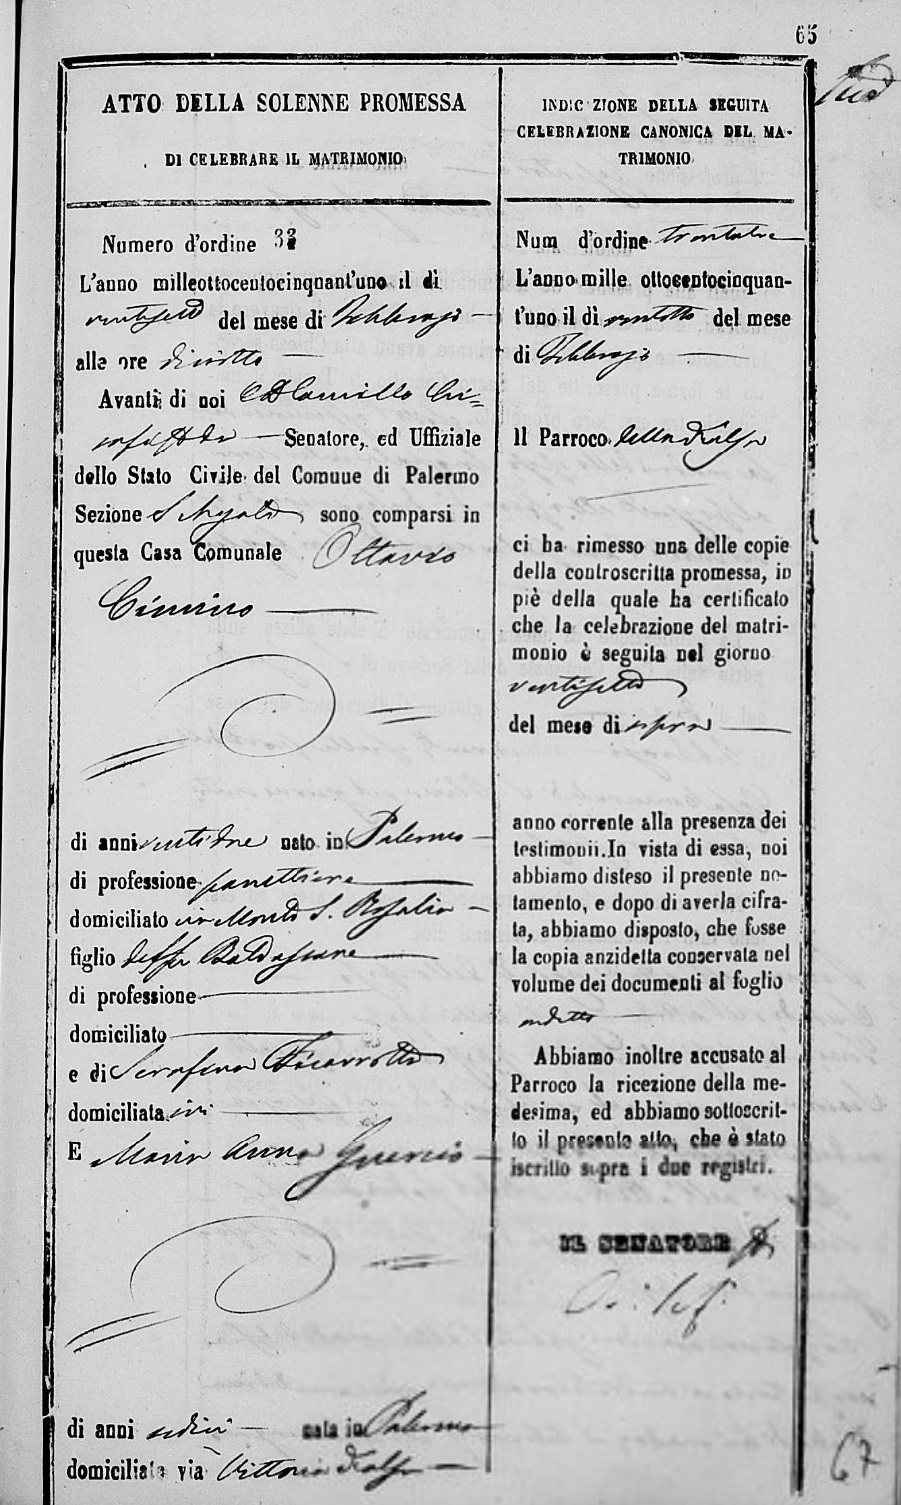 65
ATTO DELLA SOLENNE PROMESSA
DI CELEBRARE IL MATRIMONIO
Numero d'ordine 33
L'anno milleottocentocinquant'uno il dì
ventisette del mese di Febbrajo
alle ore diciotto
Avanti di noi
Senatore, ed Uffiziale
dello Stato Civile del Comune di Palermo
Sezione S. Agata sono comparsi in
questa Casa Comunale Ottavio
Cimino
di anni ventidue nato in Palermo
di professione panettiere
domiciliato in Monte S. Rosalia
figlio Baldassare
di professione
domiciliato
e di Serafina Ficarrotta
domiciliata ivi
E Maria Anna Guercio
di anni sedici nata in Palermo
domiciliata via Vittoria Kalsa
INDIC ZIONE DELLA SEGUITA
CELEBRAZIONE CANONICA DEL MA-
TRIMONIO
Num d'ordine trentatre
L'anno mille ottocentocinquan-
t'uno il dì ventotto del mese
di Febbrajo
Il Parroco della Kalsa
ci ha rimesso una delle copie
della controscritta promessa, in
piè della quale ha certificato
che la celebrazione del matri-
monio è seguita nel giorno
ventisette
del mese di
anno corrente alla presenza dei
testimonii. In vista di essa, noi
abbiamo disteso il presente no-
tamento, e dopo di averla cifra-
ta, abbiamo disposto, che fosse
la copia anzidetta conservata nel
volume dei documenti al foglio
Abbiamo inoltre accusato al
Parroco la ricezione della me-
desima, ed abbiamo sottoscrit-
to il presente atto, che è stato
iscritto sopra i due registri.
IL SENATORE
67